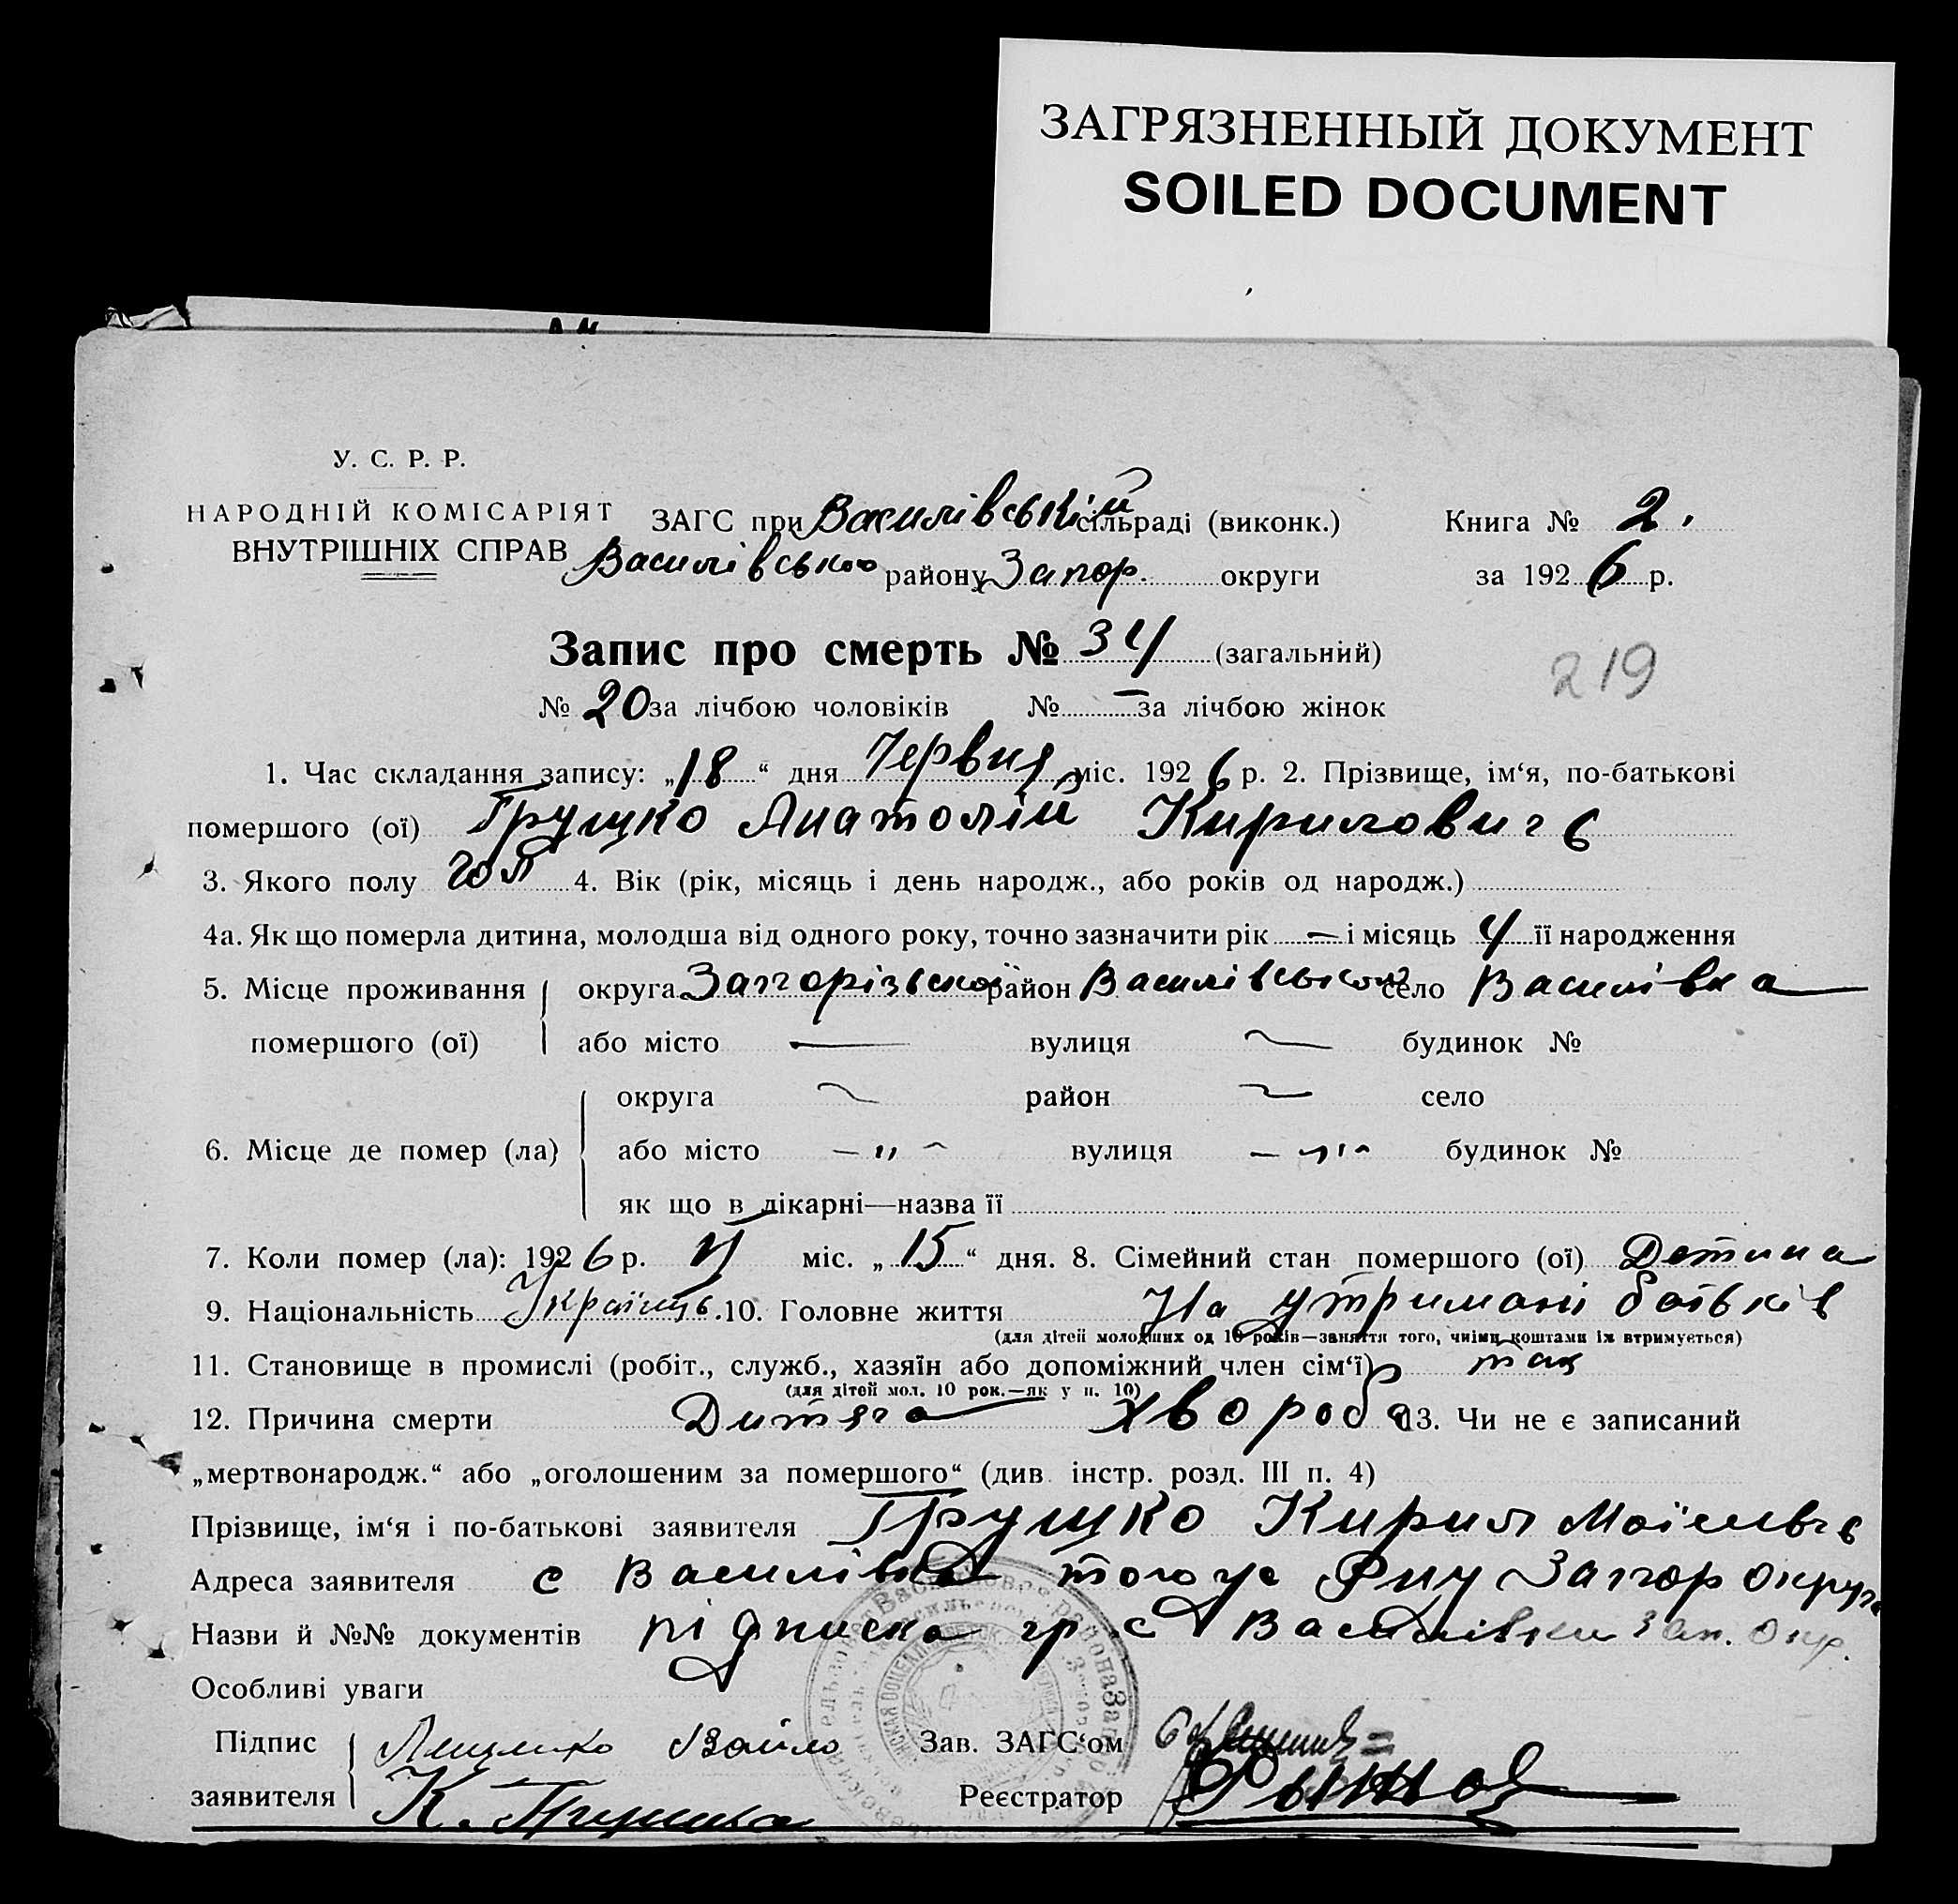 ЗАГРЯЗНЕННЫЙ ДОКУМЕНТ
SOILED DOCUMENT
У. С. Р. Р.
НАРОДНІЙ КОМІСАРІЯТ
ВНУТРІШНІХ СПРАВ
ЗАГС при Василівській сільраді (виконк.) Книга № 2.
Василівського району Запор. округи за 1926 р.
Запис про смерть № 34 (загальний)
219
№ 20 за лічбою чоловіків № — за лічбою жінок
1. Час складання запису: „18“ дня Червня міс. 1926 р. 2. Прізвище, ім‘я, по-батькові
помершого (ої) Грушко Анатолій Кирилович
3. Якого полу чол 4. Вік (рік, місяць і день народж., або років од народж.)
4а. Як що померла дитина, молодша від одного року, точно зазначити рік — і місяць 4 її народження
5. Місце проживання округа Запорізької район Василівського село Василівка
помершого (ої) або місто — вулиця — будинок №
округа — район — село
6. Місце де помер (ла) або місто — „ — вулиця — „ — будинок №
як що в лікарні—назва її
7. Коли помер (ла): 1926 р. міс. „15“ дня. 8. Сімейний стан помершого (ої) Дитина
9. Національність Українць. 10. Головне життя На утримані батьків
(для дітей молодших од 10 років—заняття того, чиїми коштами їх втримується)
11. Становище в промислі (робіт., служб., хазяїн або допоміжний член сім‘ї)
(для дітей мол. 10 рок.—як у п. 10)
12. Причина смерти Дитяча хвороба 13. Чи не є записаний
„мертвонародж.“ або „оголошеним за помершого“ (див. інстр. розд. III п. 4)
Прізвище, ім‘я і по-батькові заявителя Грушко Кирил
Адреса заявителя с Василівка того же Запор округи
Назви й №№ документів підписка гр. с Василівки Зап. Окр.
Особливі уваги
Підпис Зав. ЗАГС‘ом
заявителя К. Реєстратор